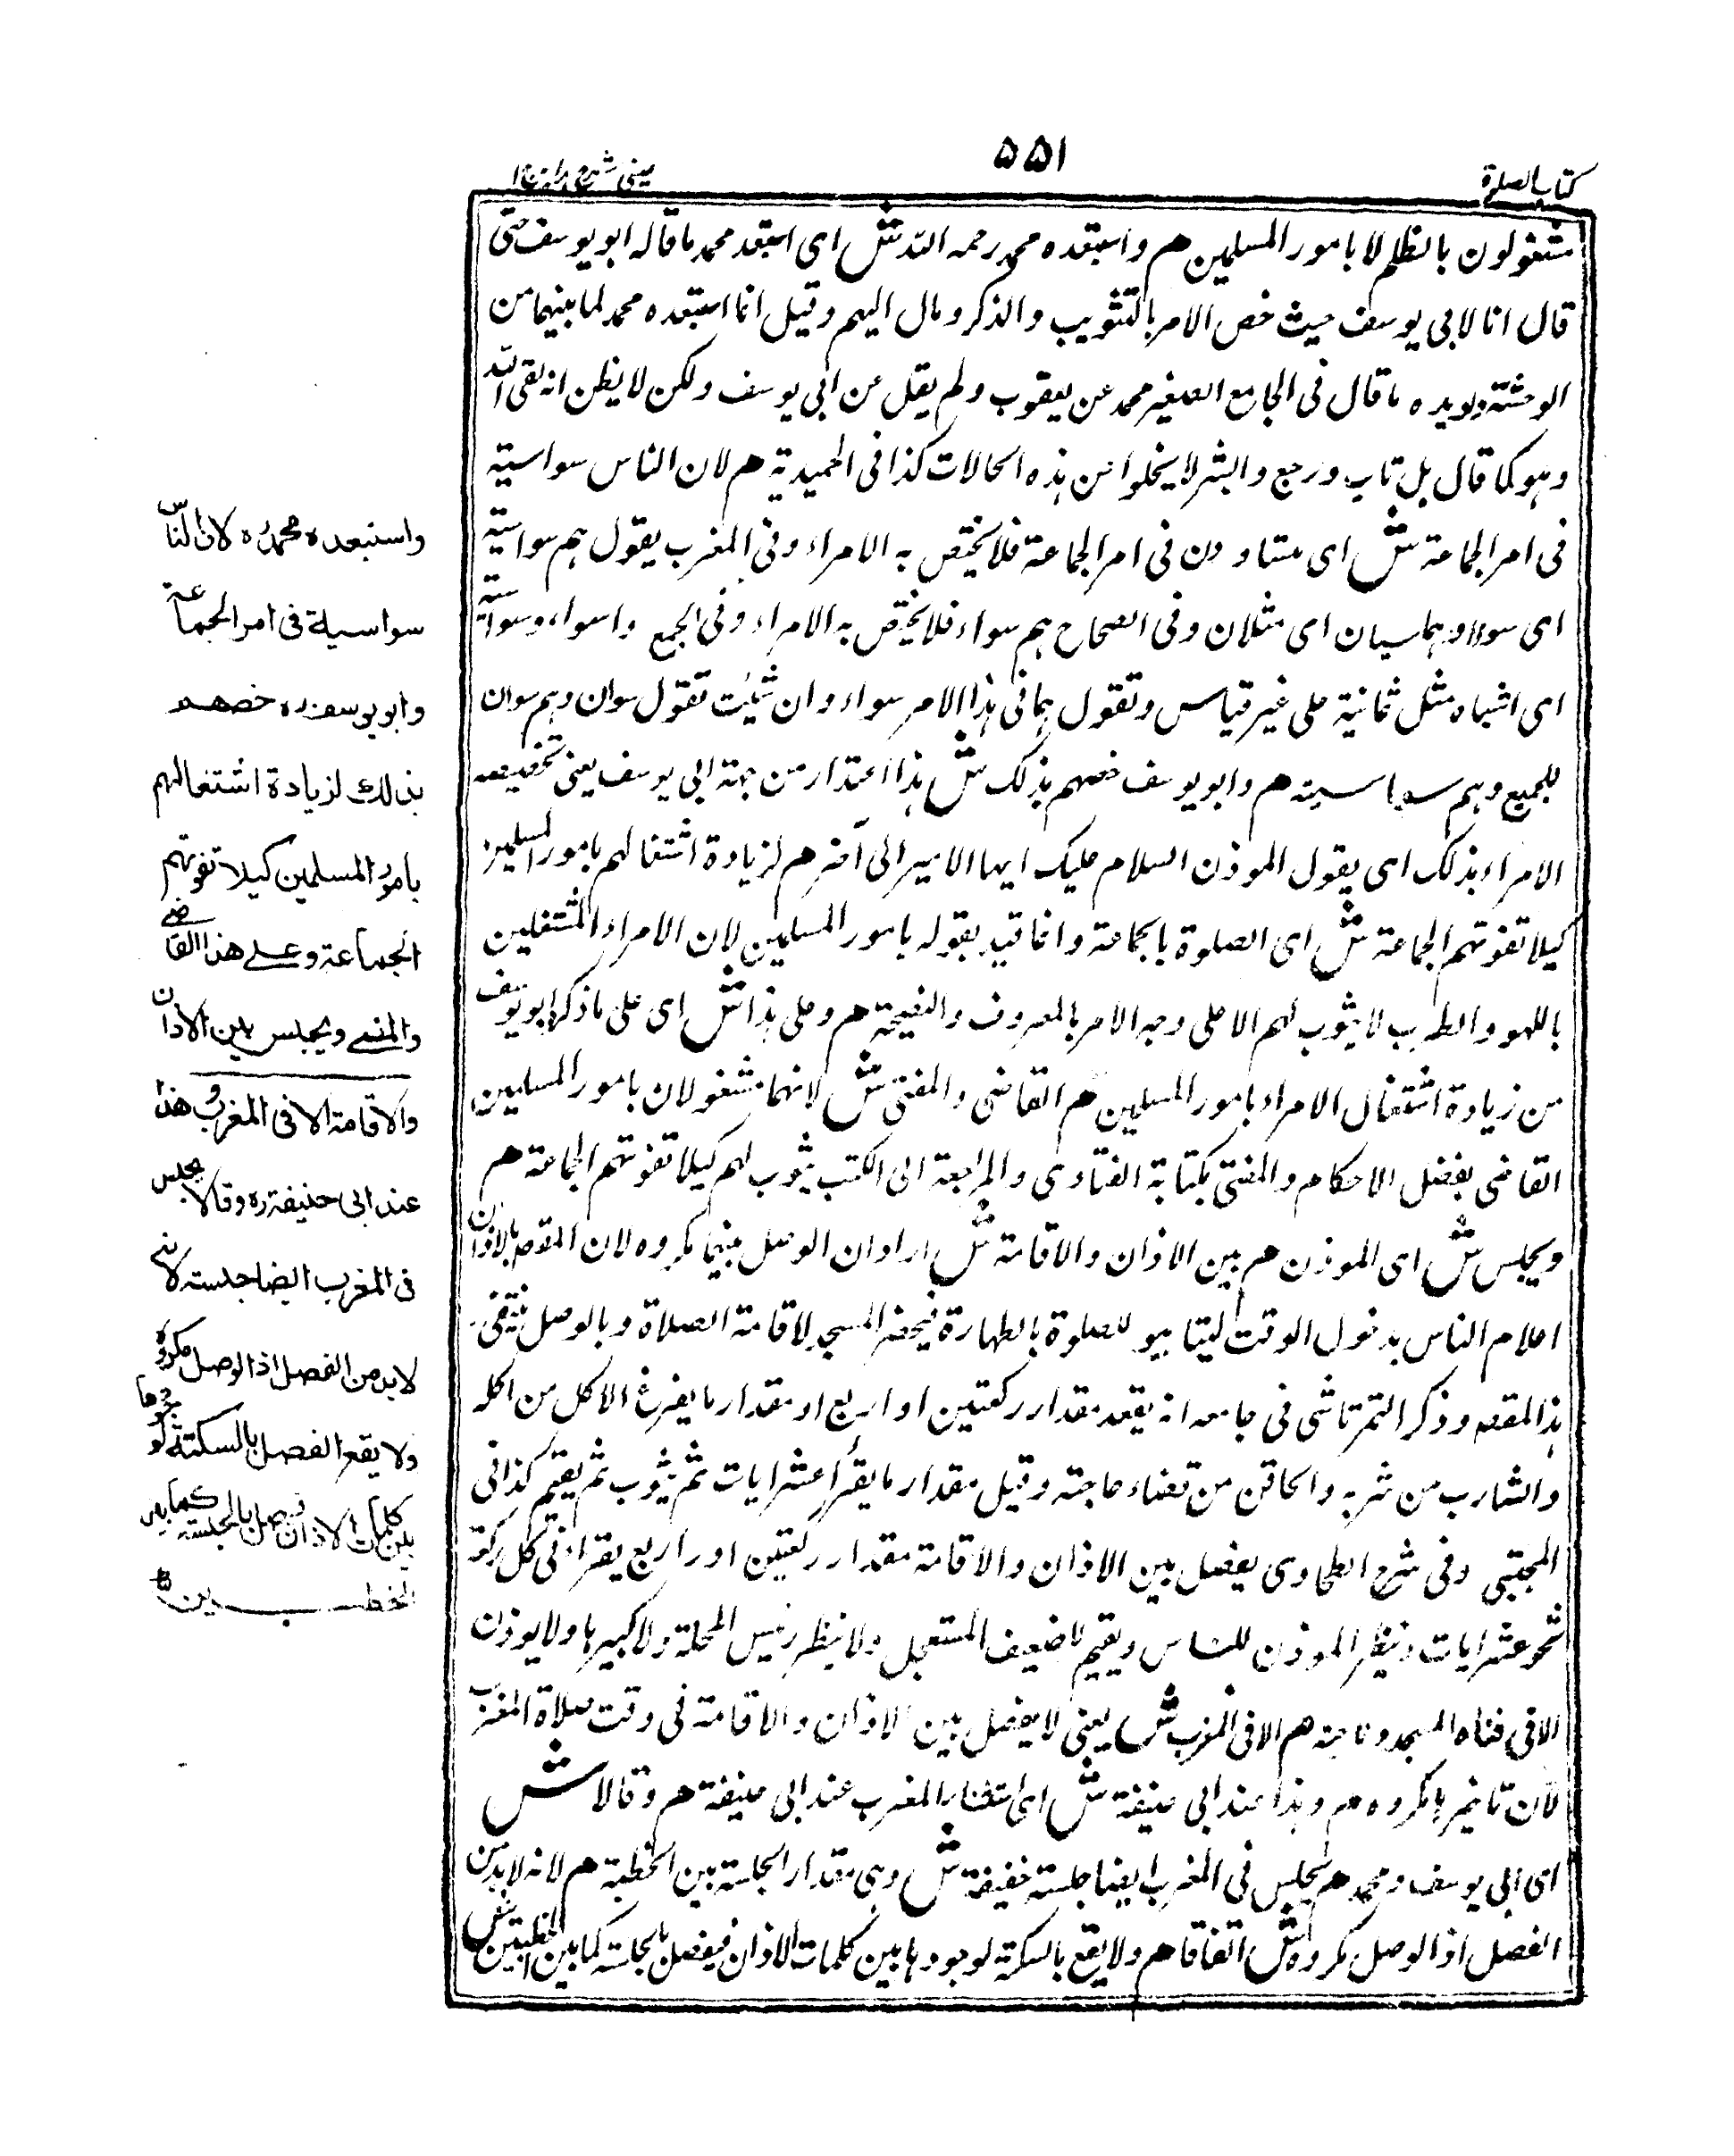 كتاب الصلوة
٥٥١
عينى شرح هدايه ج ١
مشغولون بالظلم لا بامور المسلمين هم واستبعده محمد رحمه الله ش اى استبعد محمد ما قاله ابو يوسف حتى
قال انا لابى يوسف حيث خص الامر بالتثويب والذكر ومال اليهم وقيل انما استبعده محمد لما بينهما من
الوحشة ويويده ما قال فى الجامع الصغير محمد عن يعقوب ولم يقل عن ابى يوسف ولكن لا يظن انه بقى الله
وهو كما قال بل تاب ورجع والبشر لا يخلوا عن هذه الحالات كذا فى الحميدية هم لان الناس سواسية
فى امر الجماعة ش اى متساوون فى امر الجماعة فلا يختص به الامراء وفى المغرب يقول هم سواسية
اى سواء وهما سيان اى مثلان وفى الصحاح هم سواء فلا يختص به الامراء وفى الجمع واسواء وسواسية
اى اشباه مثل ثمانية على غير قياس وتقول هما فى هذا الامر سواء وان شئت تقول سوان وهم سوان
للجميع وهم سواسية هم وابو يوسف خصهم بذلك ش هذا اعتذار من جهة ابى يوسف يعنى تخصيصه
الامراء بذلك اى يقول الموذن السلام عليك ايها الامير الى آخره هم لزيادة اشتغالهم بامور المسلمين
كيلا تفوتهم الجماعة ش اى الصلوة بالجماعة وانما قيد بقوله بامور المسلمين لان الامراء المشتغلين
باللهو والطرب لا يثوب لهم الا على وجه الامر بالمعروف والنصيحة هم وعلى هذا ش اى على ما ذكر ابو يوسف
من زيادة اشتغال الامراء بامور المسلمين هم القاضى والمفتى ش لانهما مشغولان بامور المسلمين
القاضى بفصل الاحكام والمفتى بكتابة الفتاوى والمراجعة الى الكتب يثوب لهم كيلا تفوتهم الجماعة هم
ويجلس ش اى الموذن هم بين الاذان والاقامة ش اراد ان الوصل بينهما مكروه لان المقصد بالاذان
اعلام الناس بدخول الوقت ليتاهبو للصلوة بالطهارة فيحضر المسجد لاقامة الصلاة وبالوصل ينتفى
هذا المقصد وذكر التمرتاشى فى جامعه انه يقعد مقدار ركعتين او اربع او مقدار ما يفرغ الاكل من اكله
والشارب من شربه والحاقن من قضاء حاجته وقيل مقدار ما يقرأ عشر ايات ثم يثوب ثم يقيم كذا فى
المجتبى وفى شرح الطحاوى يفصل بين الاذان والاقامة مقدار ركعتين او اربع يقرا فى كل ركعة
نحو عشر ايات وينظر الموذن للناس ويقيم لاضعيف المستعجل ولا ينظر رئيس المحلة ولا كبيرها ولا يوذن
الا فى فناء المسجد وناحيته هم الا فى المغرب ش يعنى لا يفصل بين الاذان والاقامة فى وقت صلاة المغرب
لان تاخيرها مكروه هم وهذا عند ابى حنيفة ش اى استثناء المغرب عند ابى حنيفة هم وقالا ش
اى ابى يوسف ومحمد هم يجلس فى المغرب ايضا جلسة خفيفة ش وهى مقدار الجلسة بين الخطبة هم لانه لا بد من
الفصل اذ الوصل مكروه ش اتفاقا هم ولا يقع بالسكتة لوجودها بين كلمات الاذان فيفصل بالجلسة كما بين الخطبتين ش
واستبعده محمد ره لان الناس
سواسية فى امر الجماعة
وابو يوسف ره خصهم
بذلك لزيادة اشتغالهم
بامور المسلمين كيلا تفوتهم
الجماعة وعلى هذا القاضى
والمفتى ويجلس بين الاذان
والاقامة الا فى المغرب وهذا
عند ابى حنيفة ره وقالا يجلس
فى المغرب ايضا جلسة لانه
لا بد من الفصل اذ الوصل مكروه
ولا يقع الفصل بالسكتة لوجودها
بين كلمات الاذان فيفصل بالجلسة كما بين
الخطبتين